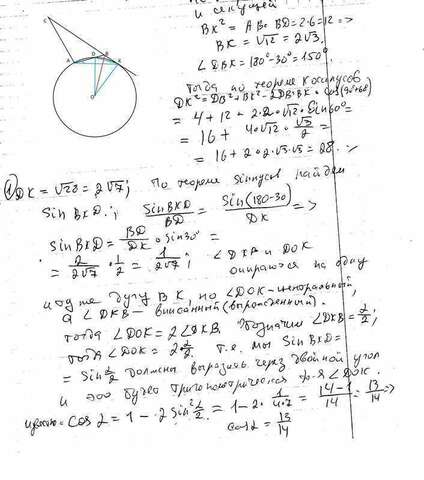 и секущей
BK² = AB·BD = 2·6 = 12 =>
BK = √12 = 2√3.
∠DBK = 180°-30° = 150°.
Тогда по теореме косинусов
DK² = DB² + BK² - 2DB·BK·cos(90+60)
= 4 + 12 + 2·2·√12·Sin60° =
= 16 + 4√12·√3/2 =
= 16 + 2·2√3·√3 = 28
C
A
D
B
K
O
1) DK = √28 = 2√7; По теореме sinусов найдем
Sin BKD: Sin BKD/BD = Sin(180-30)/DK =>
Sin BKD = BD/DK · sin30° =
= 2/2√7 · 1/2 = 1/2√7; ∠DKB и DOK
опираются на одну
и ту же дугу но ∠DOK - центральный,
а ∠DKB - вписанный (вырожденный).
Тогда ∠DOK = 2∠DKB Обозначим ∠DKB = α/2;
тогда ∠DOK = 2·α/2. т.е. мы Sin BKD =
= Sin α/2 должны выразить через двойной угол
и это будет тригонометрическая ф-я ∠DOK.
cos α = 1 - 2 sin² α/2 = 1 - 2· 1/4·7 = 14-1/14 = 13/14 =>
cos α = 13/14